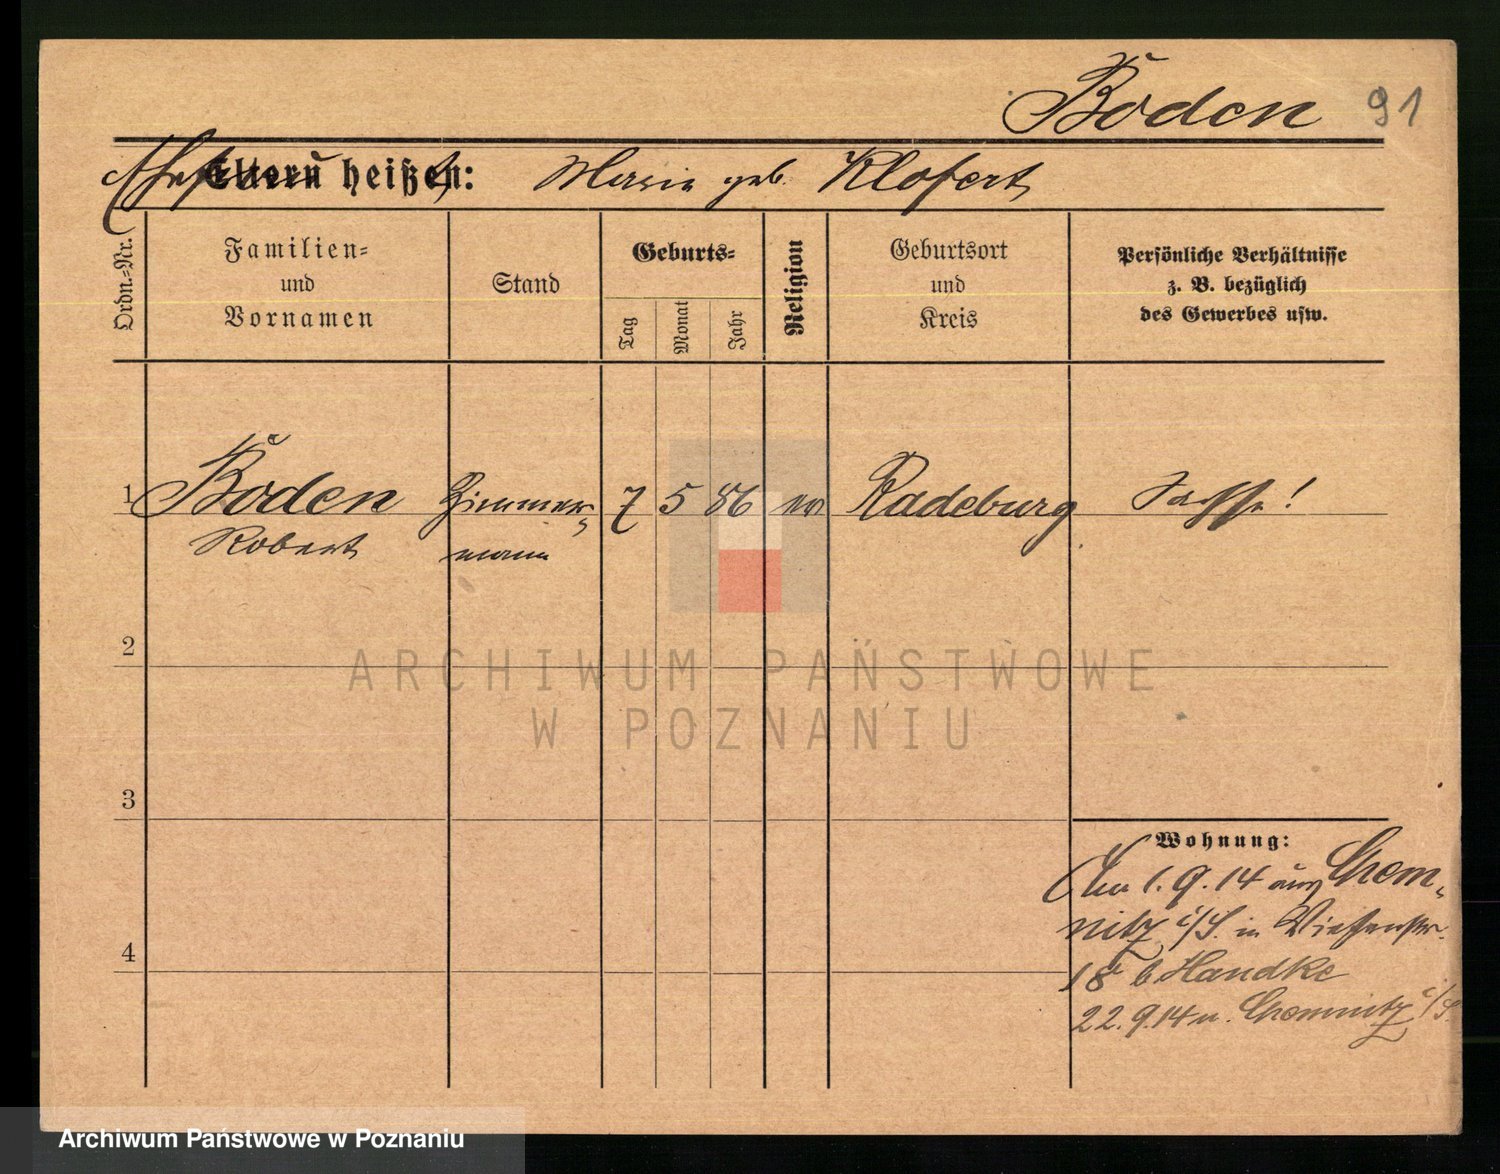 Boden 91
Eltern heißen: Marie geb. Klofert
Ordn.-Nr.
Familien-
und
Vornamen
Stand
Geburts-
Tag
Monat
Jahr
Religion
Geburtsort
und
Kreis
Persönliche Verhältnisse
z. B. bezüglich
des Gewerbes usw.
1 Boden Zimmer- 7 5 86 ev Radeburg
Robert mann
2
ARCHIWUM PAŃSTWOWE
W POZNANIU
3
Wohnung:
1.9.14 aus Chem-
nitz i/S. in
18 b Handke
22.9.14 n. Chemnitz i/S.
4
Archiwum Państwowe w Poznaniu